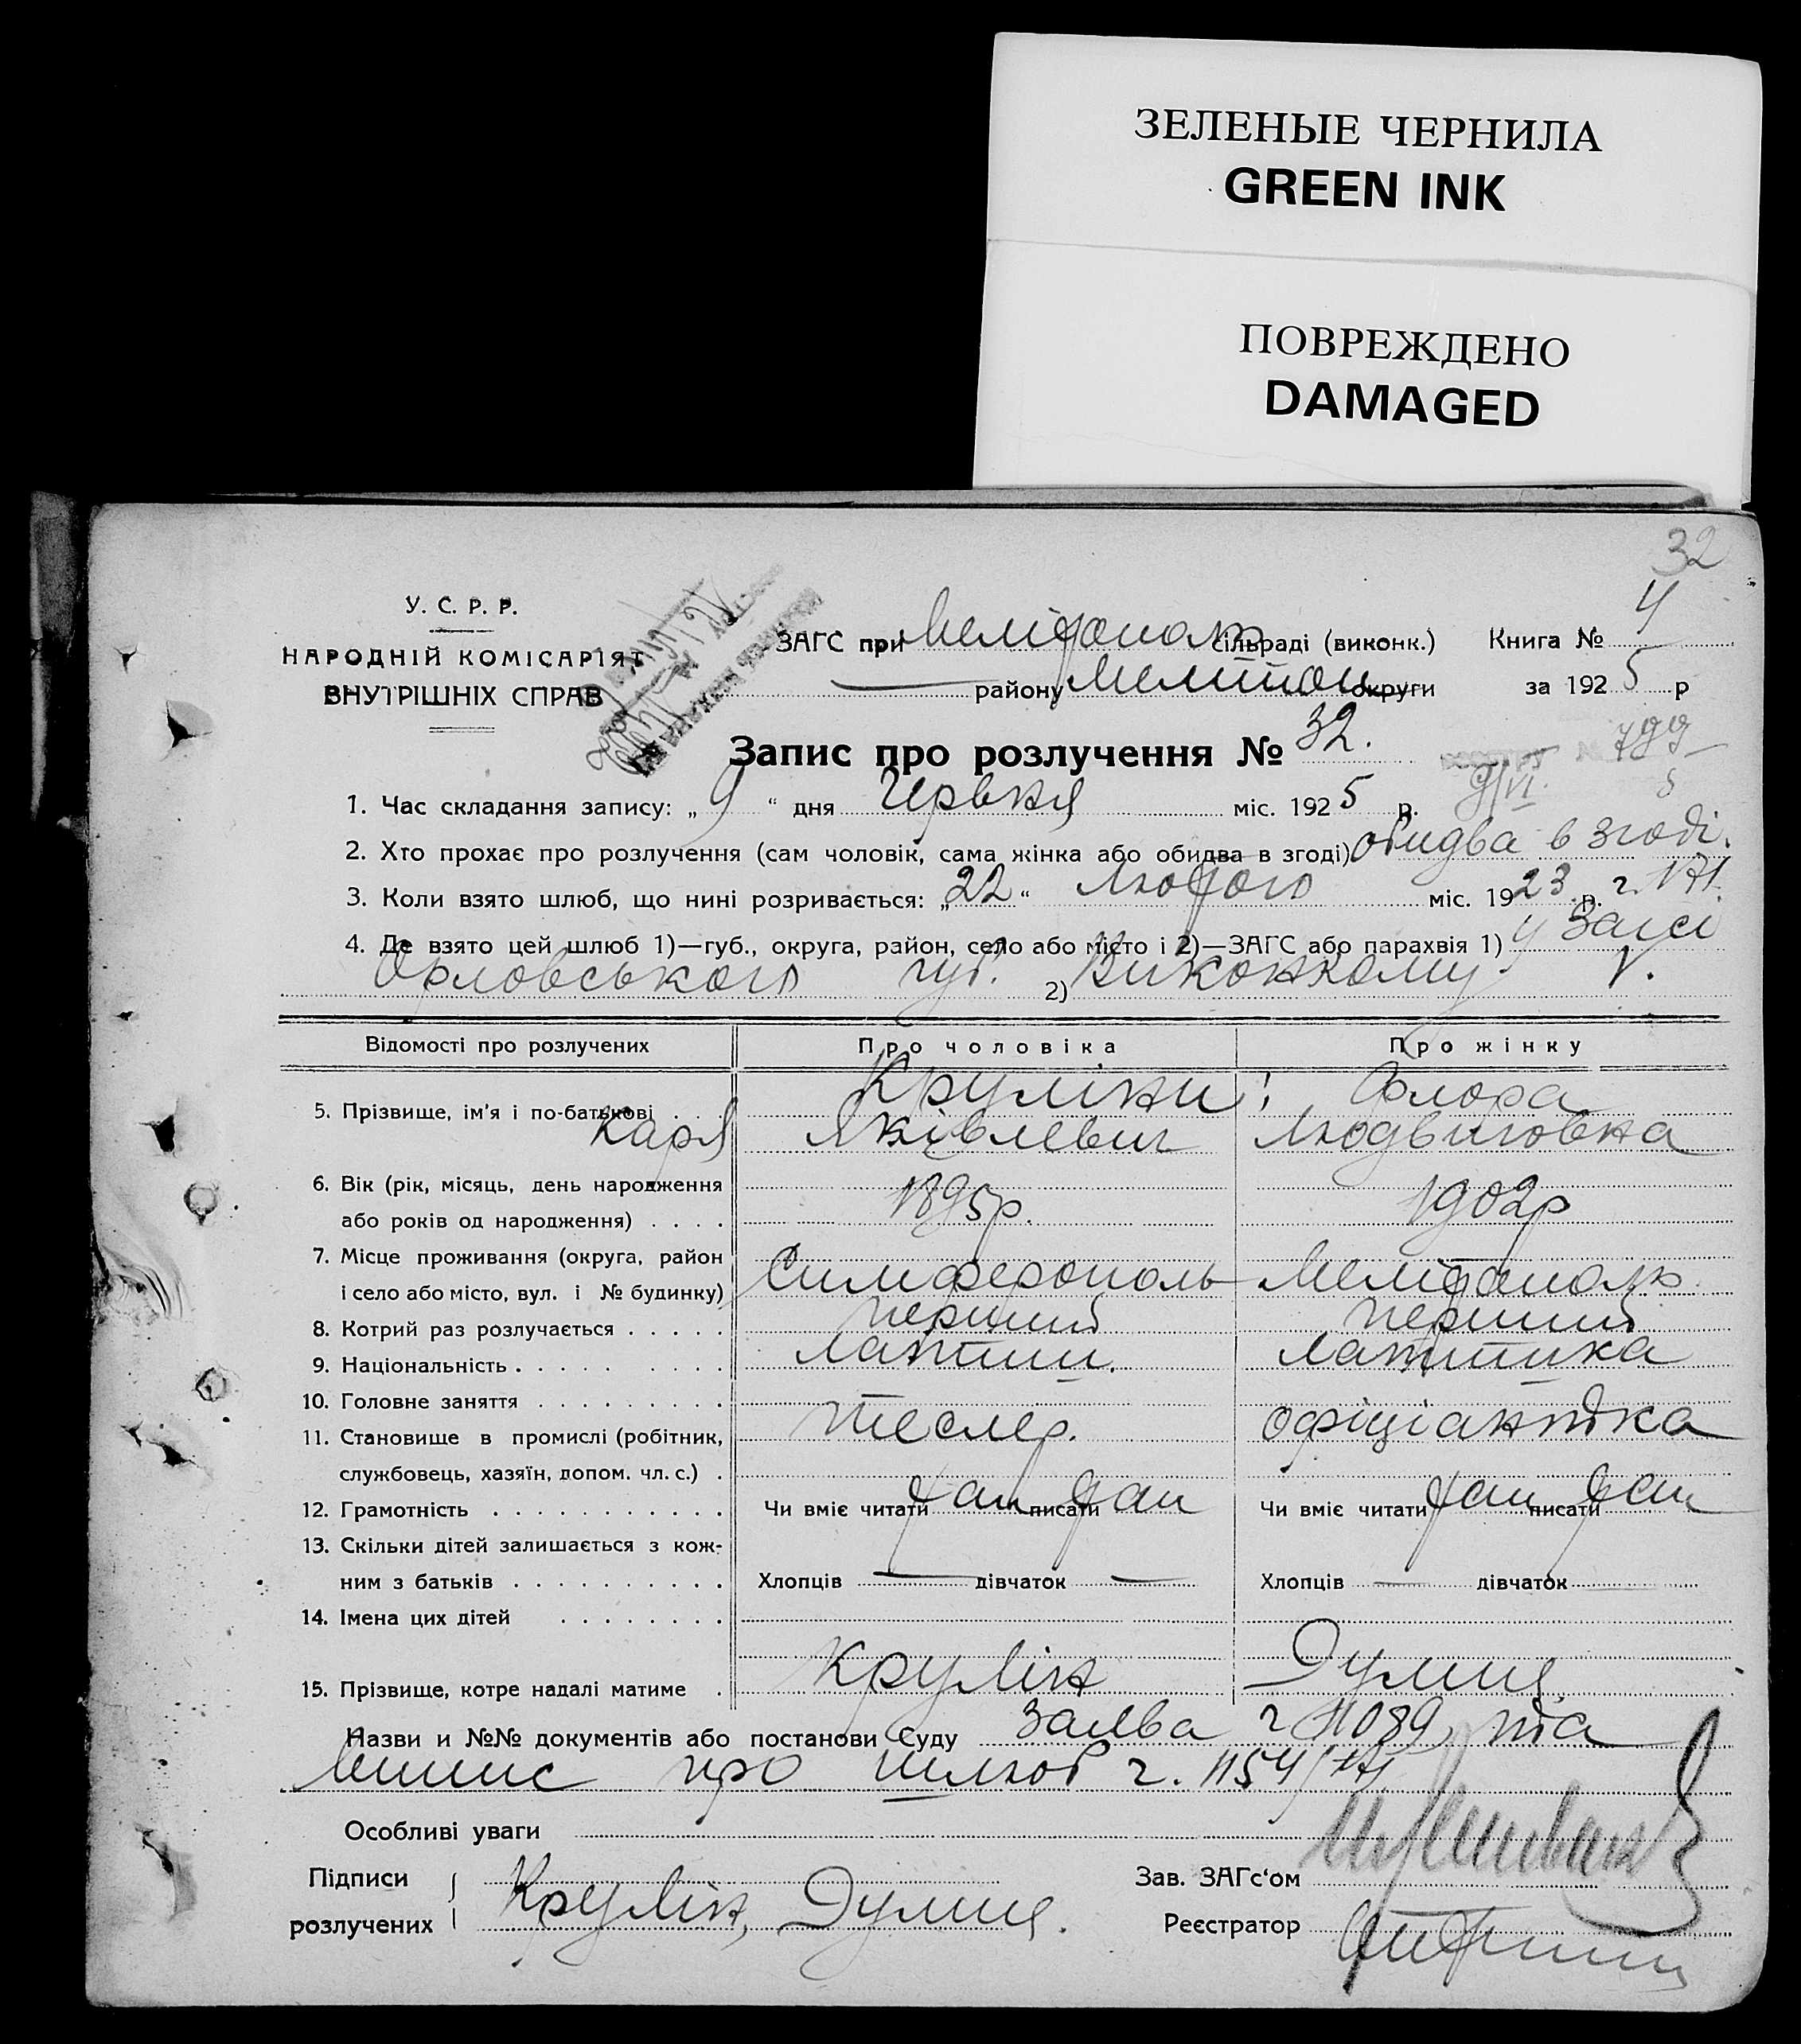 ЗЕЛЕНЫЕ ЧЕРНИЛА
GREEN INK
ПОВРЕЖДЕНО
DAMAGED
32
У. С. Р. Р.
НАРОДНІЙ КОМІСАРІЯТ
ВНУТРІШНІХ СПРАВ
ЗАГС при Мелітополь сільраді (виконк.) Книга № 4
— району Мелітоп округи за 1925 р
Запис про розлучення № 32.
799
9/VI. 5
1. Час складання запису: „9“ дня Червня міс. 1925 р.
2. Хто прохає про розлучення (сам чоловік, сама жінка або обидва в згоді) обидва в згоді.
3. Коли взято шлюб, що нині розривається: „22“ Лютого міс. 1923 р. г. 171.
4. Де взято цей шлюб 1)—губ., округа, район, село або місто і 2)—ЗАГС або парахвія 1) у Загсі
Орловського губ. 2) Виконкому.
Відомості про розлучених Про чоловіка Про жінку
5. Прізвище, ім'я і по-батькові . . . Круліни: Флора
Карл Яківлевич Людвиговна
6. Вік (рік, місяць, день народження
або років од народження) . . . . 1895р. 1902р
7. Місце проживання (округа, район
і село або місто, вул. і № будинку) Симферополь Мелітополь
8. Котрий раз розлучається . . . . . перший перший
9. Національність . . . . . латиш. латишка
10. Головне заняття . . . . . . . . .
11. Становище в промислі (робітник, тесляр. офіціантка
службовець, хазяїн, допом. чл. с.) .
12. Грамотність . . . . . . . . . . . Чи вміє читати так писати так Чи вміє читати так писати так
13. Скільки дітей залишається з кож-
ним з батьків . . . . . . . . . . Хлопців — дівчаток — Хлопців — дівчаток
14. Імена цих дітей . . . . . . . .
15. Прізвище, котре надалі матиме . Крулін Думпе
Назви и №№ документів або постанови Суду Заява г 11089, та
випис про шлюб г. 1154/171
Особливі уваги
Підписи
розлучених Крулін, Думпе.
Зав. ЗАГс'ом
Реєстратор